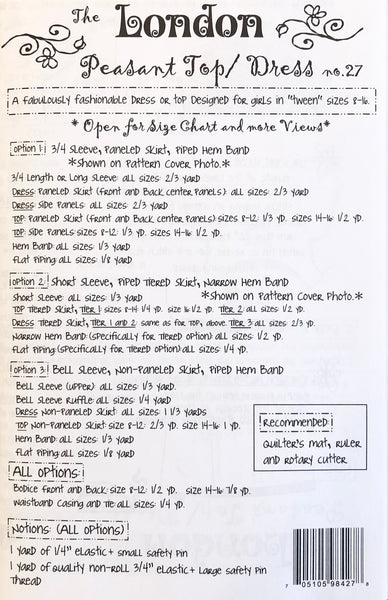 The London
Peasant Top/ Dress no.27
A fabulously fashionable dress or top designed for girls in "tween" sizes 8-16.
* Open for Size Chart and more Views*
Option 1: 3/4 Sleeve, Paneled Skirt, Piped Hem Band
*Shown on Pattern Cover Photo.*
3/4 Length or Long Sleeve: all sizes: 2/3 yard
Dress: Paneled Skirt (Front and Back center Panels): all sizes: 2/3 yard
Dress: Side Panels: all sizes: 2/3 yard
Top: Paneled Skirt (Front and Back center Panels) sizes 8-12: 1/3 yd. sizes 14-16: 1/2 yd.
Top: Side Panels: sizes 8-12: 1/3 yd. sizes 14-16: 1/2 yd.
Hem Band: all sizes: 1/3 yard
Flat Piping: all sizes: 1/8 yard
Option 2: Short Sleeve, Piped Tiered Skirt, Narrow Hem Band
Short Sleeve: all sizes: 1/3 yard *Shown on Pattern Cover Photo.*
Top Tiered Skirt, Tier 1: sizes 8-14: 1/4 yd. size 16 1/2 yd. Tier 2: all sizes: 1/2 yd.
Dress: Tiered Skirt, Tier 1 and 2: same as for top, above. Tier 3: all sizes: 2/3 yd.
Narrow Hem Band (Specifically for Tiered option) all sizes: 1/2 yd.
Flat Piping (Specifically for Tiered option) all sizes: 1/4 yd.
Option 3: Bell Sleeve, Non-Paneled Skirt, Piped Hem Band
Bell Sleeve (upper): all sizes: 1/3 yard.
Bell Sleeve Ruffle: all sizes: 1/4 yard
Dress Non-Paneled Skirt: all sizes: 1 1/3 yards
Top Non-Paneled Skirt: size 8-12: 2/3 yd. size 14-16: 1 yd.
Hem Band: all sizes: 1/3 yard
Flat Piping all sizes: 1/8 yard
Recommended:
Quilter's mat, ruler
and rotary cutter
ALL options:
Bodice Front and Back: size 8-12: 1/2 yd. size 14-16: 7/8 yd.
Waistband Casing and Tie: all sizes: 1/4 yd.
Notions: (ALL options)
1 yard of 1/4" elastic + small safety pin
1 yard of quality non-roll 3/4" elastic + Large safety pin
Thread
7 05105 98427 8